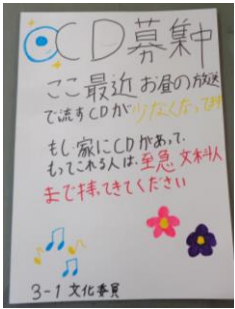 CD募集中
ここ最近お昼の放送
で流すCDが少なくなって
もし家にCDがあって、
もってこれる人は、至急 文科人
まで持ってきてください
3-1 文化委員